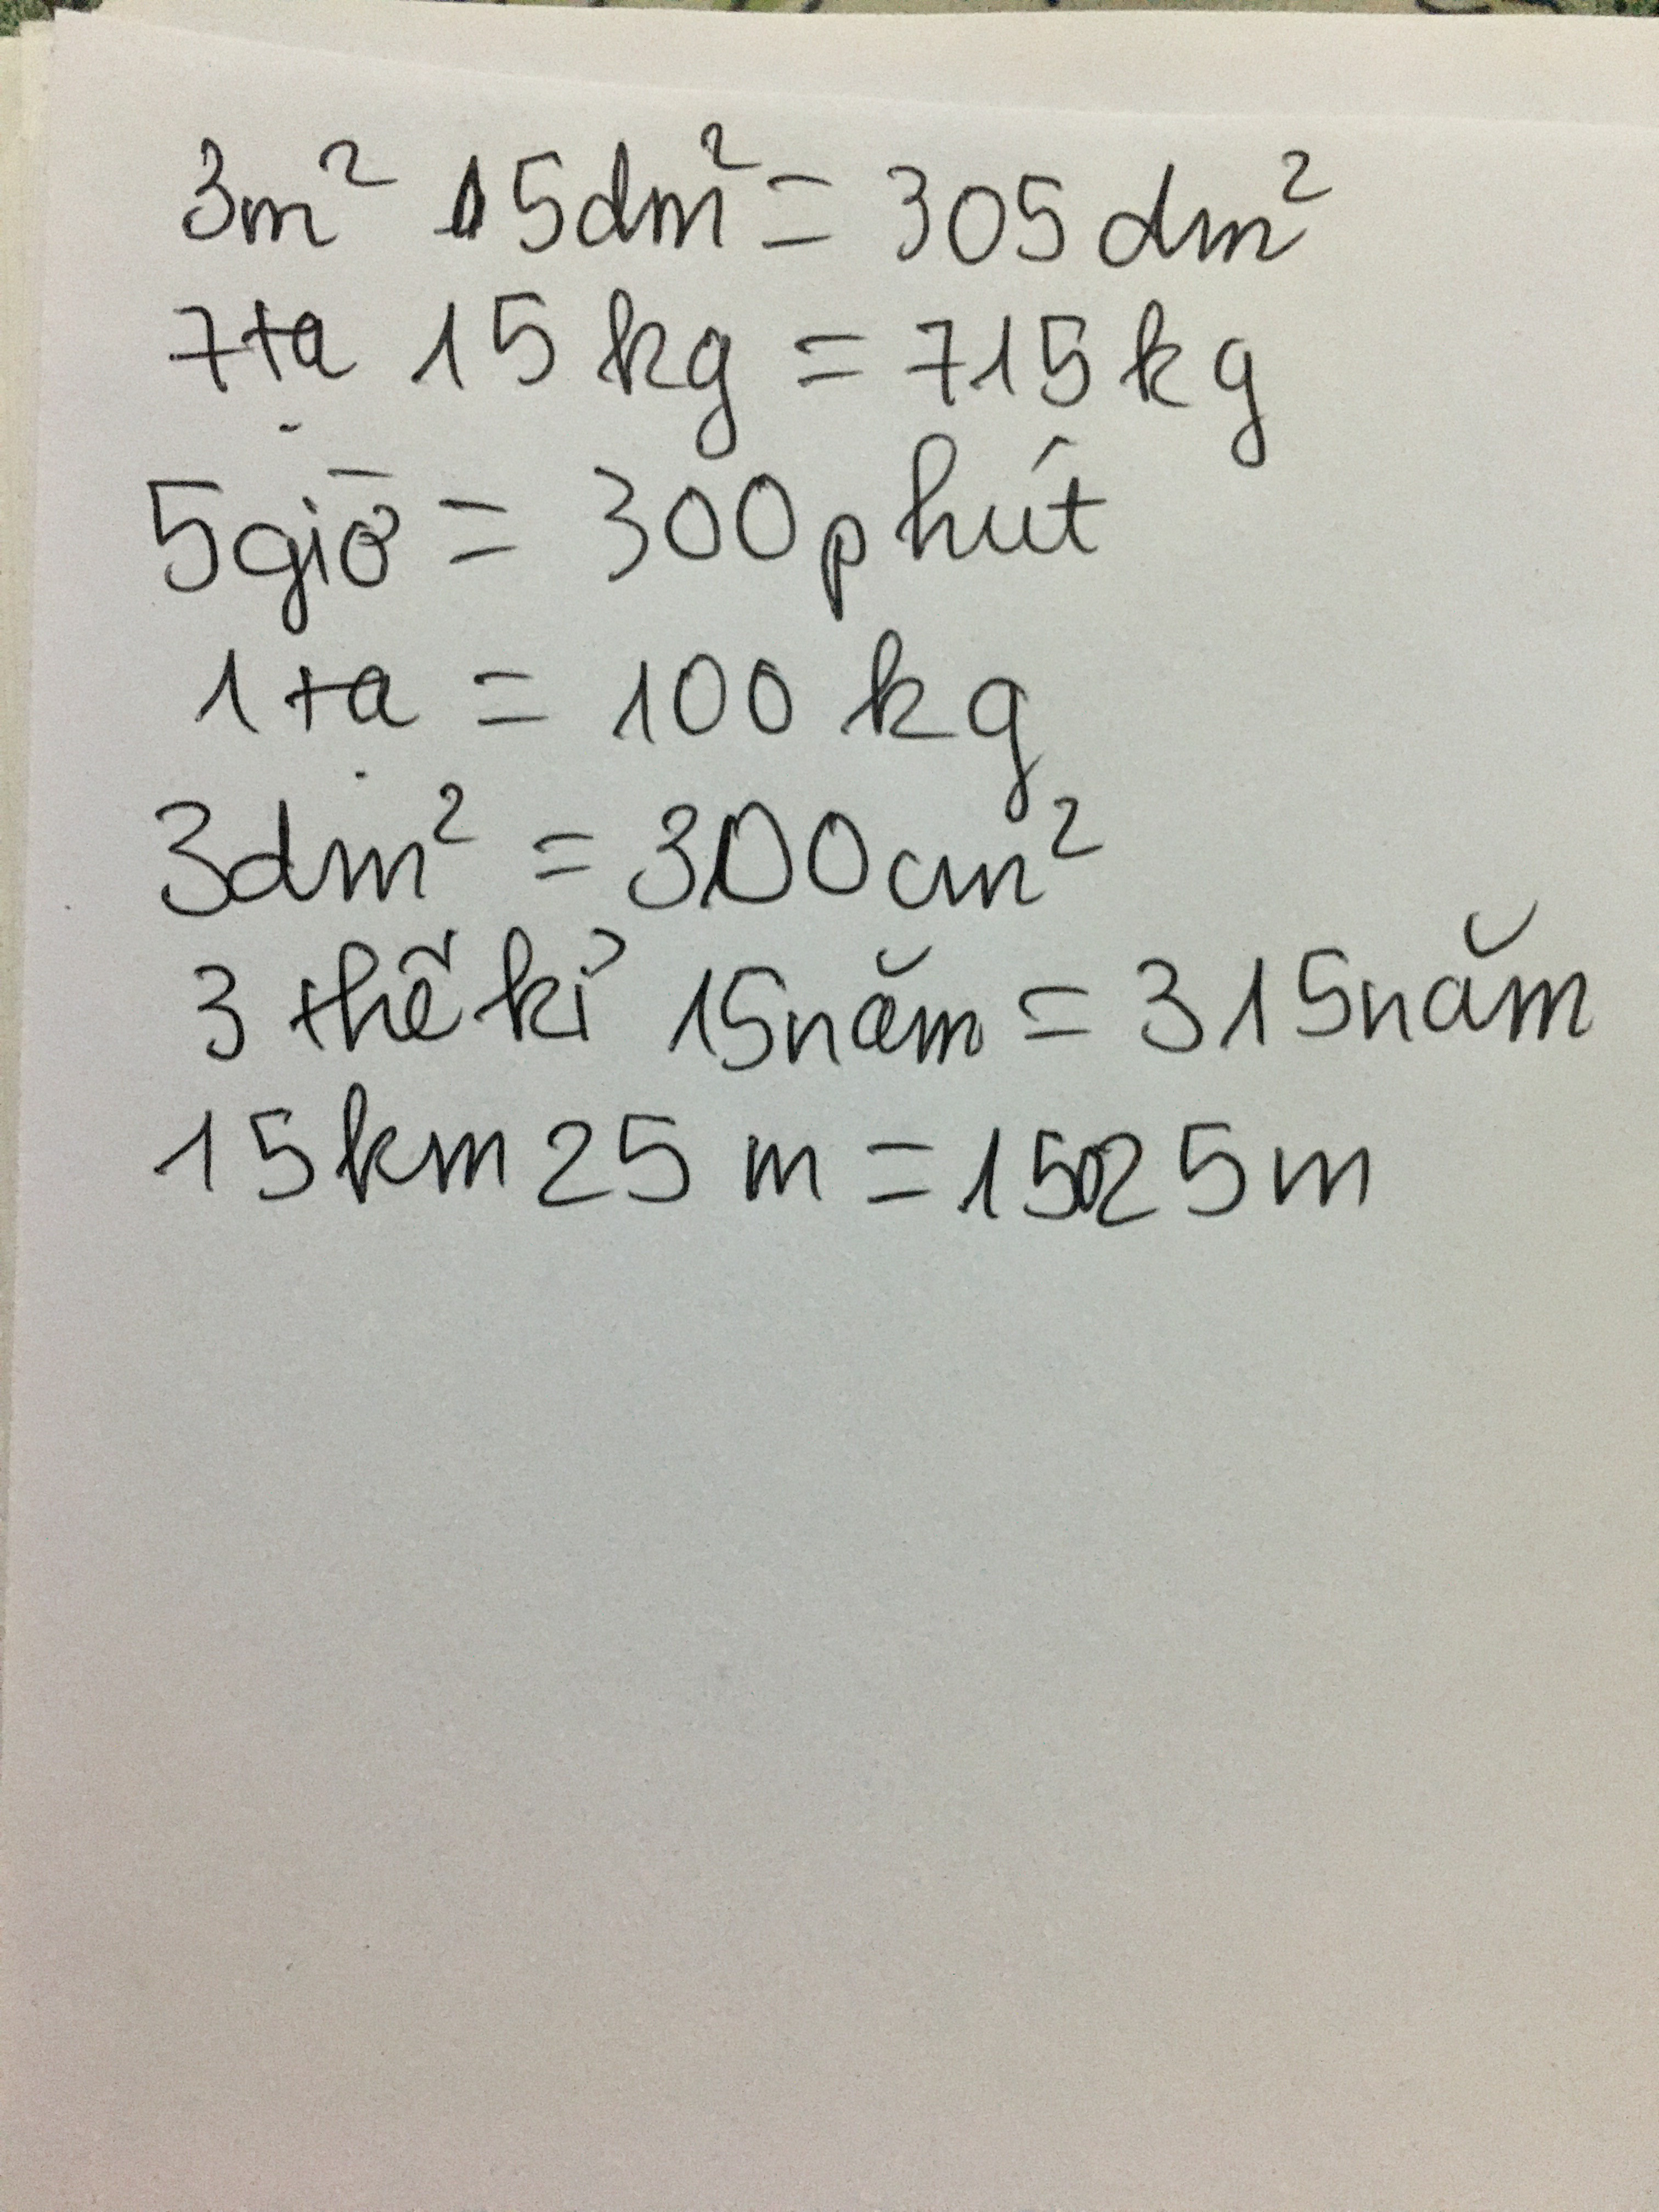 3m² 05dm² = 305 dm²
7tạ 15 kg = 715 kg
5 giờ = 300 phút
1 tạ = 100 kg
3dm² = 300cm²
3 thế kỉ 15 năm = 315 năm
15km 25 m = 15025 m